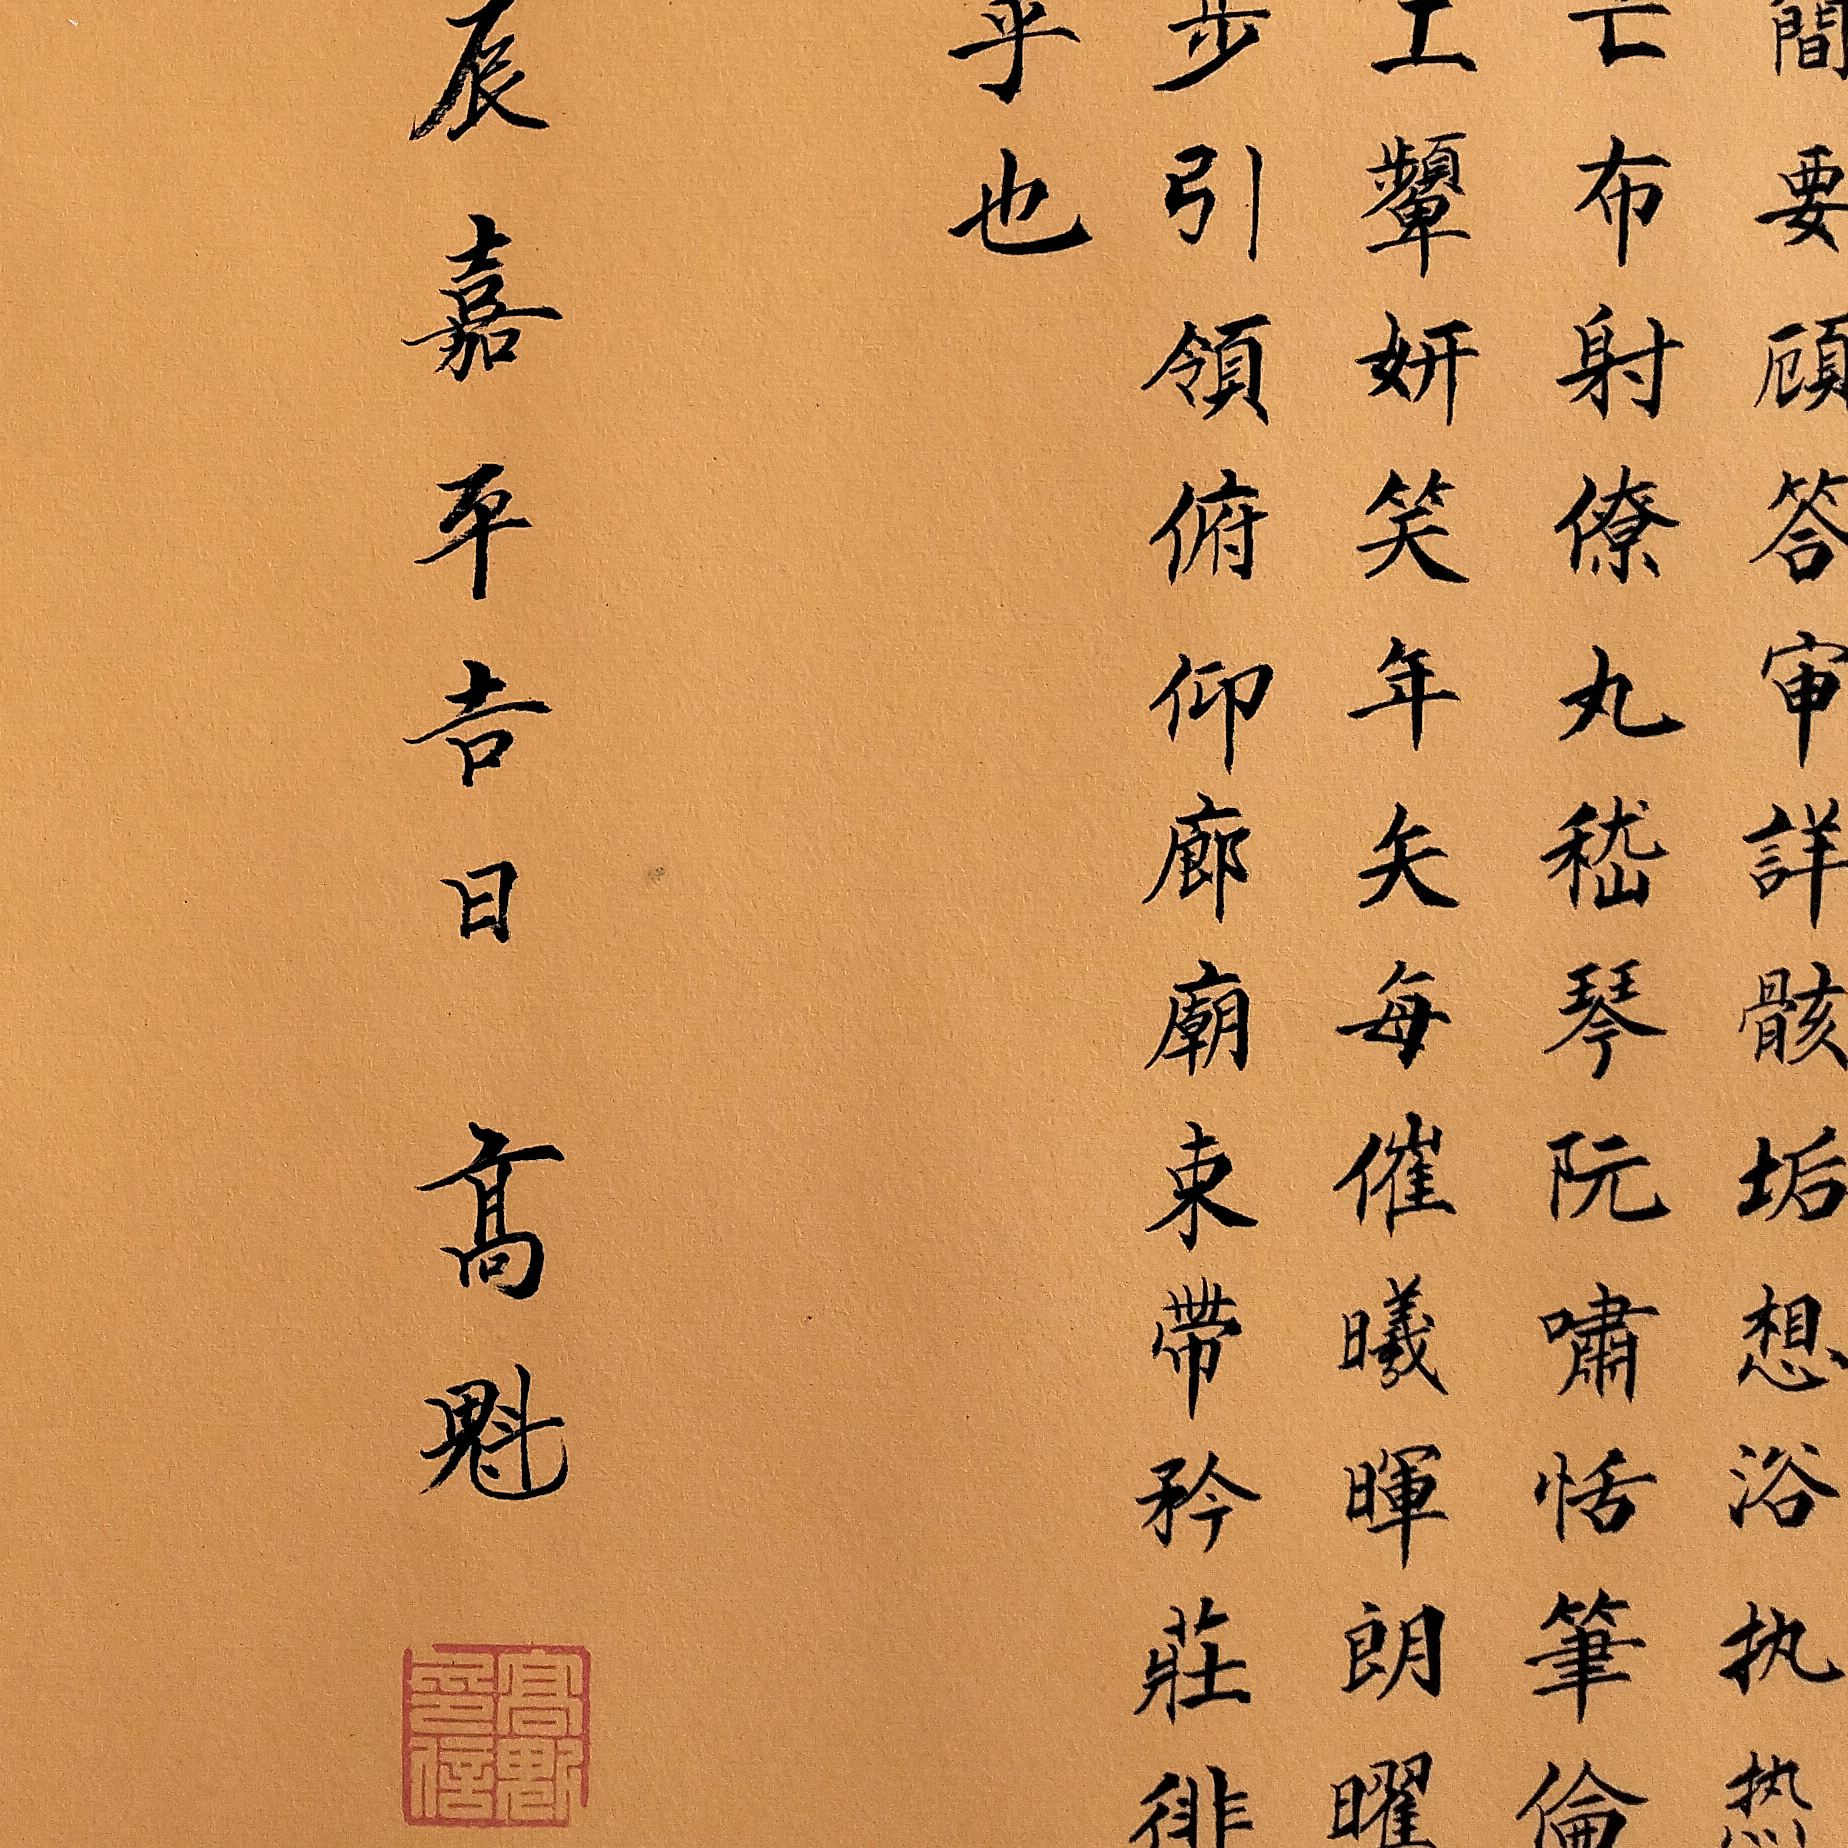 簡要顧答審詳骸垢想浴执热
亡布射僚丸嵇琴阮嘯恬筆倫
工顰妍笑年矢每催曦暉朗曜
步引領俯仰廊廟束帶矜莊徘
乎也
辰嘉平吉日 高魁
高魁